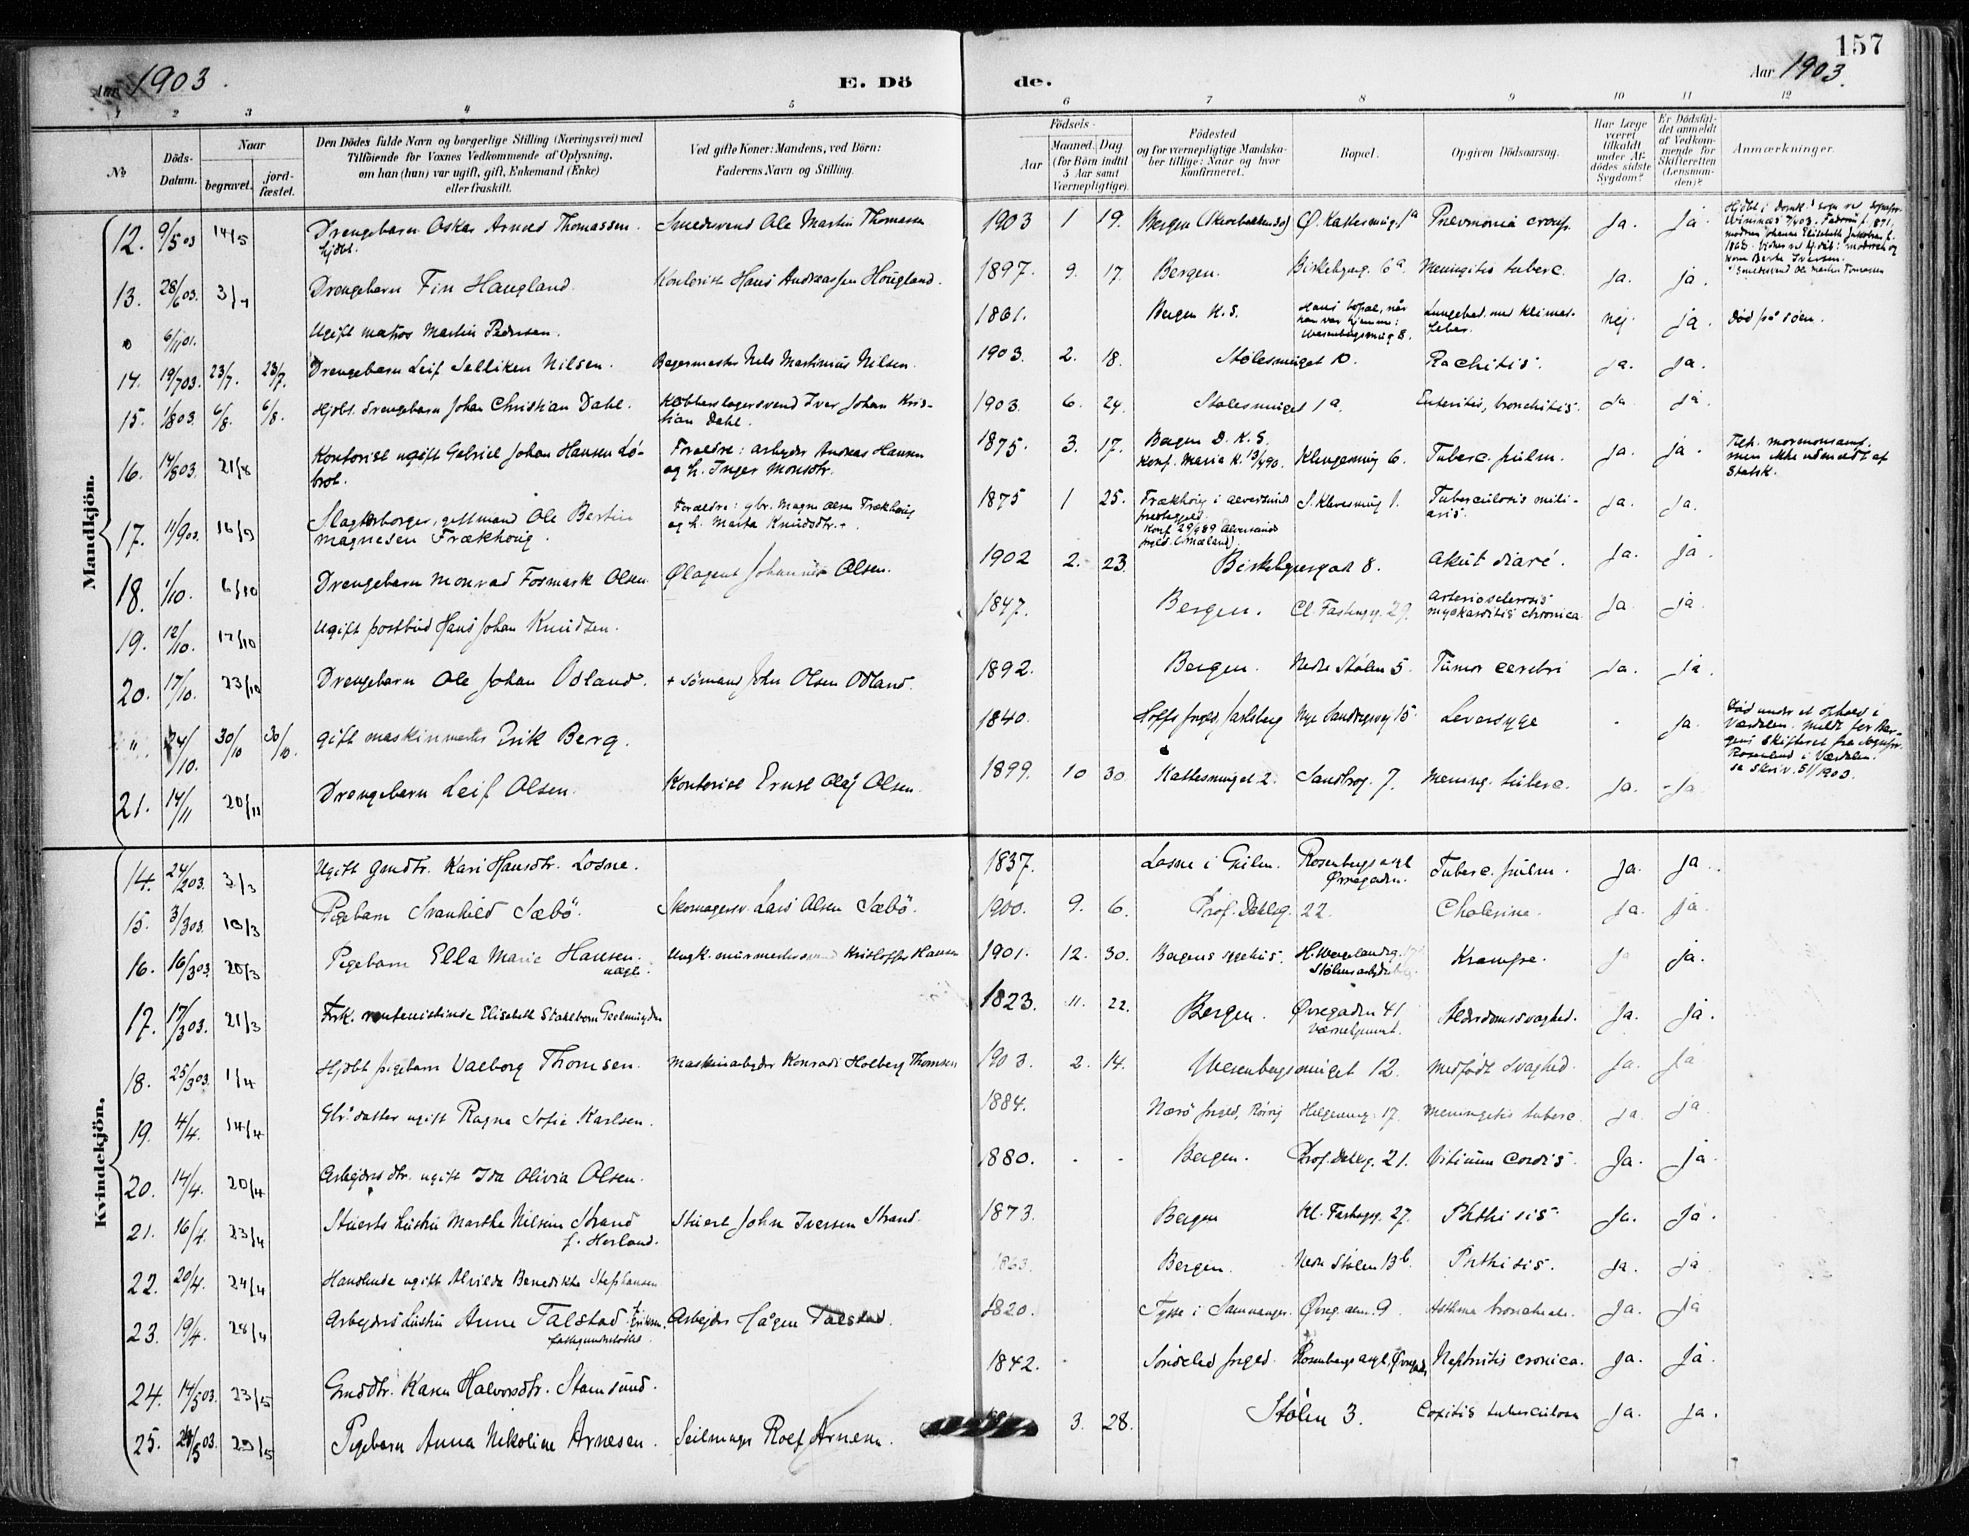 157
Aar 1903.
E. Dö
de.
Aar 1903.
1 2 3 4 5 6 7 8 9 10 11 12
No
Döds-
Datum.
Naar
begravet.
jord-
fæstet.
Den Dödes fulde Navn og borgerlige Stilling (Næringsvei) med
Tilföiende for Voxnes Vedkommende af Oplysning,
om han (hun) var ugift, gift, Enkemand (Enke)
eller fraskilt.
Ved gifte Koner: Mandens, ved Börn:
Faderens Navn og Stilling.
Födsels-
Aar
Maaned. Dag
(for Börn indtil
5 Aar samt
Værnepligtige).
Födested
og for værnepligtige Mandska-
ber tillige: Naar og hvor
konfirmeret.
Bopæl.
Opgiven Dödsaarsag.
Har Læge
været
tilkaldt
under Af-
dödes sidste
Sygdom?
Er Dödsfal-
det anmeldt
af Vedkom-
mende for
Skifteretten
(Lensman-
den)?
Anmærkninger.
Mandkjön.
12. 9/5 03 14/5 Drengebarn Oskar Arnold Thomassen. Smedsvend Ole Martin Thomassen 1903 1 19. Bergen Ø. Kattesmug 1a Pnevmonia croup. Ja. Ja.
hjdbt.
13. 28/6 03. 3/7 Drengebarn Fin Haugland. Kontorist Hans Andreassen Hougland. 1897. 9. 17. Bergen. Birkebgerg. 6a. Meningitis tuberc. Ja. ja.
" 6/11 01. Ugift matros Martin Pedersen. 1861. Bergen K. S. Hans bopæl, når
han var hjemme:
Wesenbergsmug 8. Lungebet. med klimat-
feber. nej. ja. Død på søen.
14. 19/7 03. 23/7. 23/7. Drengebarn Leif Selliken Nilsen. Bagermester Nils Martinius Nilsen. 1903. 2. 18. Stølesmuget 10. Rachitis. ja. Ja.
15. 1/8 03. 6/8. 6/8. Hjdbt. drengebarn Johan Christian Dahl. Kobberslagersvend Iver Johan Kris-
tian Dahl. 1903. 6. 24. Stølesmuget 1a. Enteritis, bronchitis. Ja ja
16. 14/8 03 21/8 Kontorist ugift Gabriel Johan Hansen Lø-
brot. Forældre: arbejder Andreas Hansen
og h. Inger Monsdtr. 1875. 3. 17. Bergen D. K. S.
Konf. Maria K. 13/4 90. Klingesmug 6. Tuberc. pulm. Ja. ja. mormonsamf.
men ikke udmeldt af
Statsk.
17. 11/9 03. 16/9 Slagterborger, gift mand Ole Bertin
Magnesen Frækhoug. Forældre: gbr. Magne Olsen Frækhoug
og h. Marta Knudsdtr. +. 1875 1 25. Frækhoug i Alversund
prestegjeld.
Konf. 29/9 89 Alversunds
prgld. (Mæland). S. Klevesmug 1. Tuberculosis mili-
aris. Ja. Ja.
18. 1/10. 6/10 Drengebarn Monrad Formark Olsen. Ølagent Johannes Olsen. 1902 2. 23. Birkebgergaden 8. Akut diaré. Ja. ja.
19. 12/10. 17/10 Ugift postbud Hans Johan Knudsen. 1847. Bergen. Cl. Fastingsg. 29. Arteriosclerosis
myokarditis chronica. Ja ja
20. 17/10. 23/10 Drengebarn Ole Johan Odland. + sømand John Olsen Odland. 1892. Bergen. Nedre Stølen 5. Tumor cerebri Ja. ja.
" 24/10. 30/10 30/10. gift maskinmester Erik Berg. 1840. Hoffs prgld. Jarlsberg Nye Sandvigsvej 15. Leversyge - ja. Død under et ophold i
Værdalen. Meldt for Ber-
gens Skifteret fra sognepr.
Rosenlund i Værdalen.
se skriv. 51/1903.
21. 14/11 20/11 Drengebarn Leif Olsen. Kontorist Ernst Olaf Olsen. 1899. 10 30. Kattesmuget 2. Sandbrog. 7. Mening. tuberc. Ja. - Ja
Kvindekjön.
14. 24/2 03. 3/3 Ugift gmdtr. Kari Hansdtr. Losne. 1837. Losne i Gulen. Rosenbergs asyl
Øvregaden. Tuberc. pulm. Ja. ja.
15. 3/3 03. 10/3 Pigebarn Svanhild Sæbö. Skomagersv. Lars Olsen Sæbö. 1900. 9. 6. Prof. Dahlsg. 22. Cholerine. Ja. ja.
16. 16/3 03. 20/3 Pigebarn Ella Marie Hansen.
uægte. Ungk. murmestersvend Kristoffer Hansen 1901. 12. 30. Bergens sygehus. H. Wergelandsg. 17
Stølens arbejderbol. Krampe. Ja ja.
17. 17/3 03. 21/3 Frk. rentenistinde Elisabeth Stahlbom Geelmuyden 1823. 11. 22. Bergen. Øvregaden 41
Alderdomssvaghed. Ja. ja.
18. 25/3 03. 1/4 Hjdbt pigebarn Valborg Thomsen. Maskinarbejder Konrad Holberg Thomsen 1903. 2. 14. Wesenbergsmuget 12. Medfødt Svaghed. Ja. Ja
19. 4/4. 14/4 Gbr. datter ugift Ragna Sofie Karlsen. 1884. Nærö prgld, Rörvig Helgesmug. 17. Meningitis tuberc. Ja. ja.
20. 14/4. 20/4 Arbejdersdtr. ugift Ida Olivia Olsen. 1880. - - Bergen. Prof. Dahlsg. 21. Vitium cordis. Ja. ja.
21. 16/4. 23/4 Stuerts hustru Marthe Nilsine Strand
f. Herland. Stuert John Iversen Strand. 1873. Bergen Kl. Fastingsg. 27. Phthisis. Ja. ja.
22. 20/4. 24/4 Handlende ugift Alvilde Benedikte Stephansen 1863. Bergen. Nedre Stølen 13b. Phthisis. Ja. ja
23. 19/4. 28/4 Arbejders hustru Anne Talstad f. Eriksen.
fattigunderstøttet. Arbejder Hågen Talstad. 1820. Tysse i Samnanger. Øvreg. alm. 9. Asthma bronchiale. Ja. ja
24. 14/5 03. 23/5 Gmddtr. Karen Halvorsdtr. Stamsund. 1842. - Söndeled prgld. Rosenbergs asyl, Øvregaden Nephritis cronica. Ja. ja.
25. 24/5 03. 29/5 Pigebarn Anna Nikoline Arnesen. Seilmager Rolf Arnesen. 3. 28. Stølen 3. Coxitis tuberculosa Ja. ja.